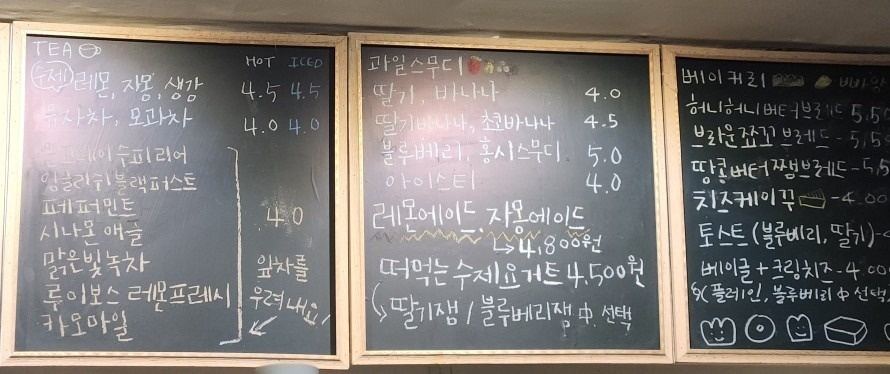 TEA
HOT ICED
수제 레몬, 자몽, 생강 4.5 4.5
유자차, 모과차 4.0 4.0
얼그레이수피리어
잉글리쉬블랙퍼스트
페퍼민트
4.0
시나몬애플
맑은빛녹차
잎차를
루이보스 레몬프레시
우려내요!
카모마일
과일스무디
딸기, 바나나 4.0
딸기바나나, 초코바나나 4.5
블루베리, 홍시스무디 5.0
아이스티 4.0
레몬에이드, 자몽에이드
↳ 4,800원
떠먹는 수제요거트 4.500원
딸기잼 / 블루베리잼 中 선택
베이커리
허니허니버터브레드 5,50
브라운쪼꼬브레드 - 5,5
땅콩버터쨈브레드 - 5,5
치즈케이꾸 - 4.00
토스트(블루베리, 딸기) -
베이글 + 크림치즈 - 4.00
(플레인, 블루베리 中 선택